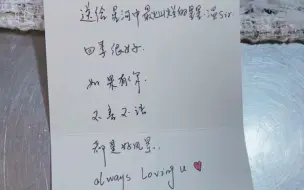 送给星河中最灿烂的星星·温Sir
四季很好.
如果有你.
不言不语
都是好风景.
always Loving u